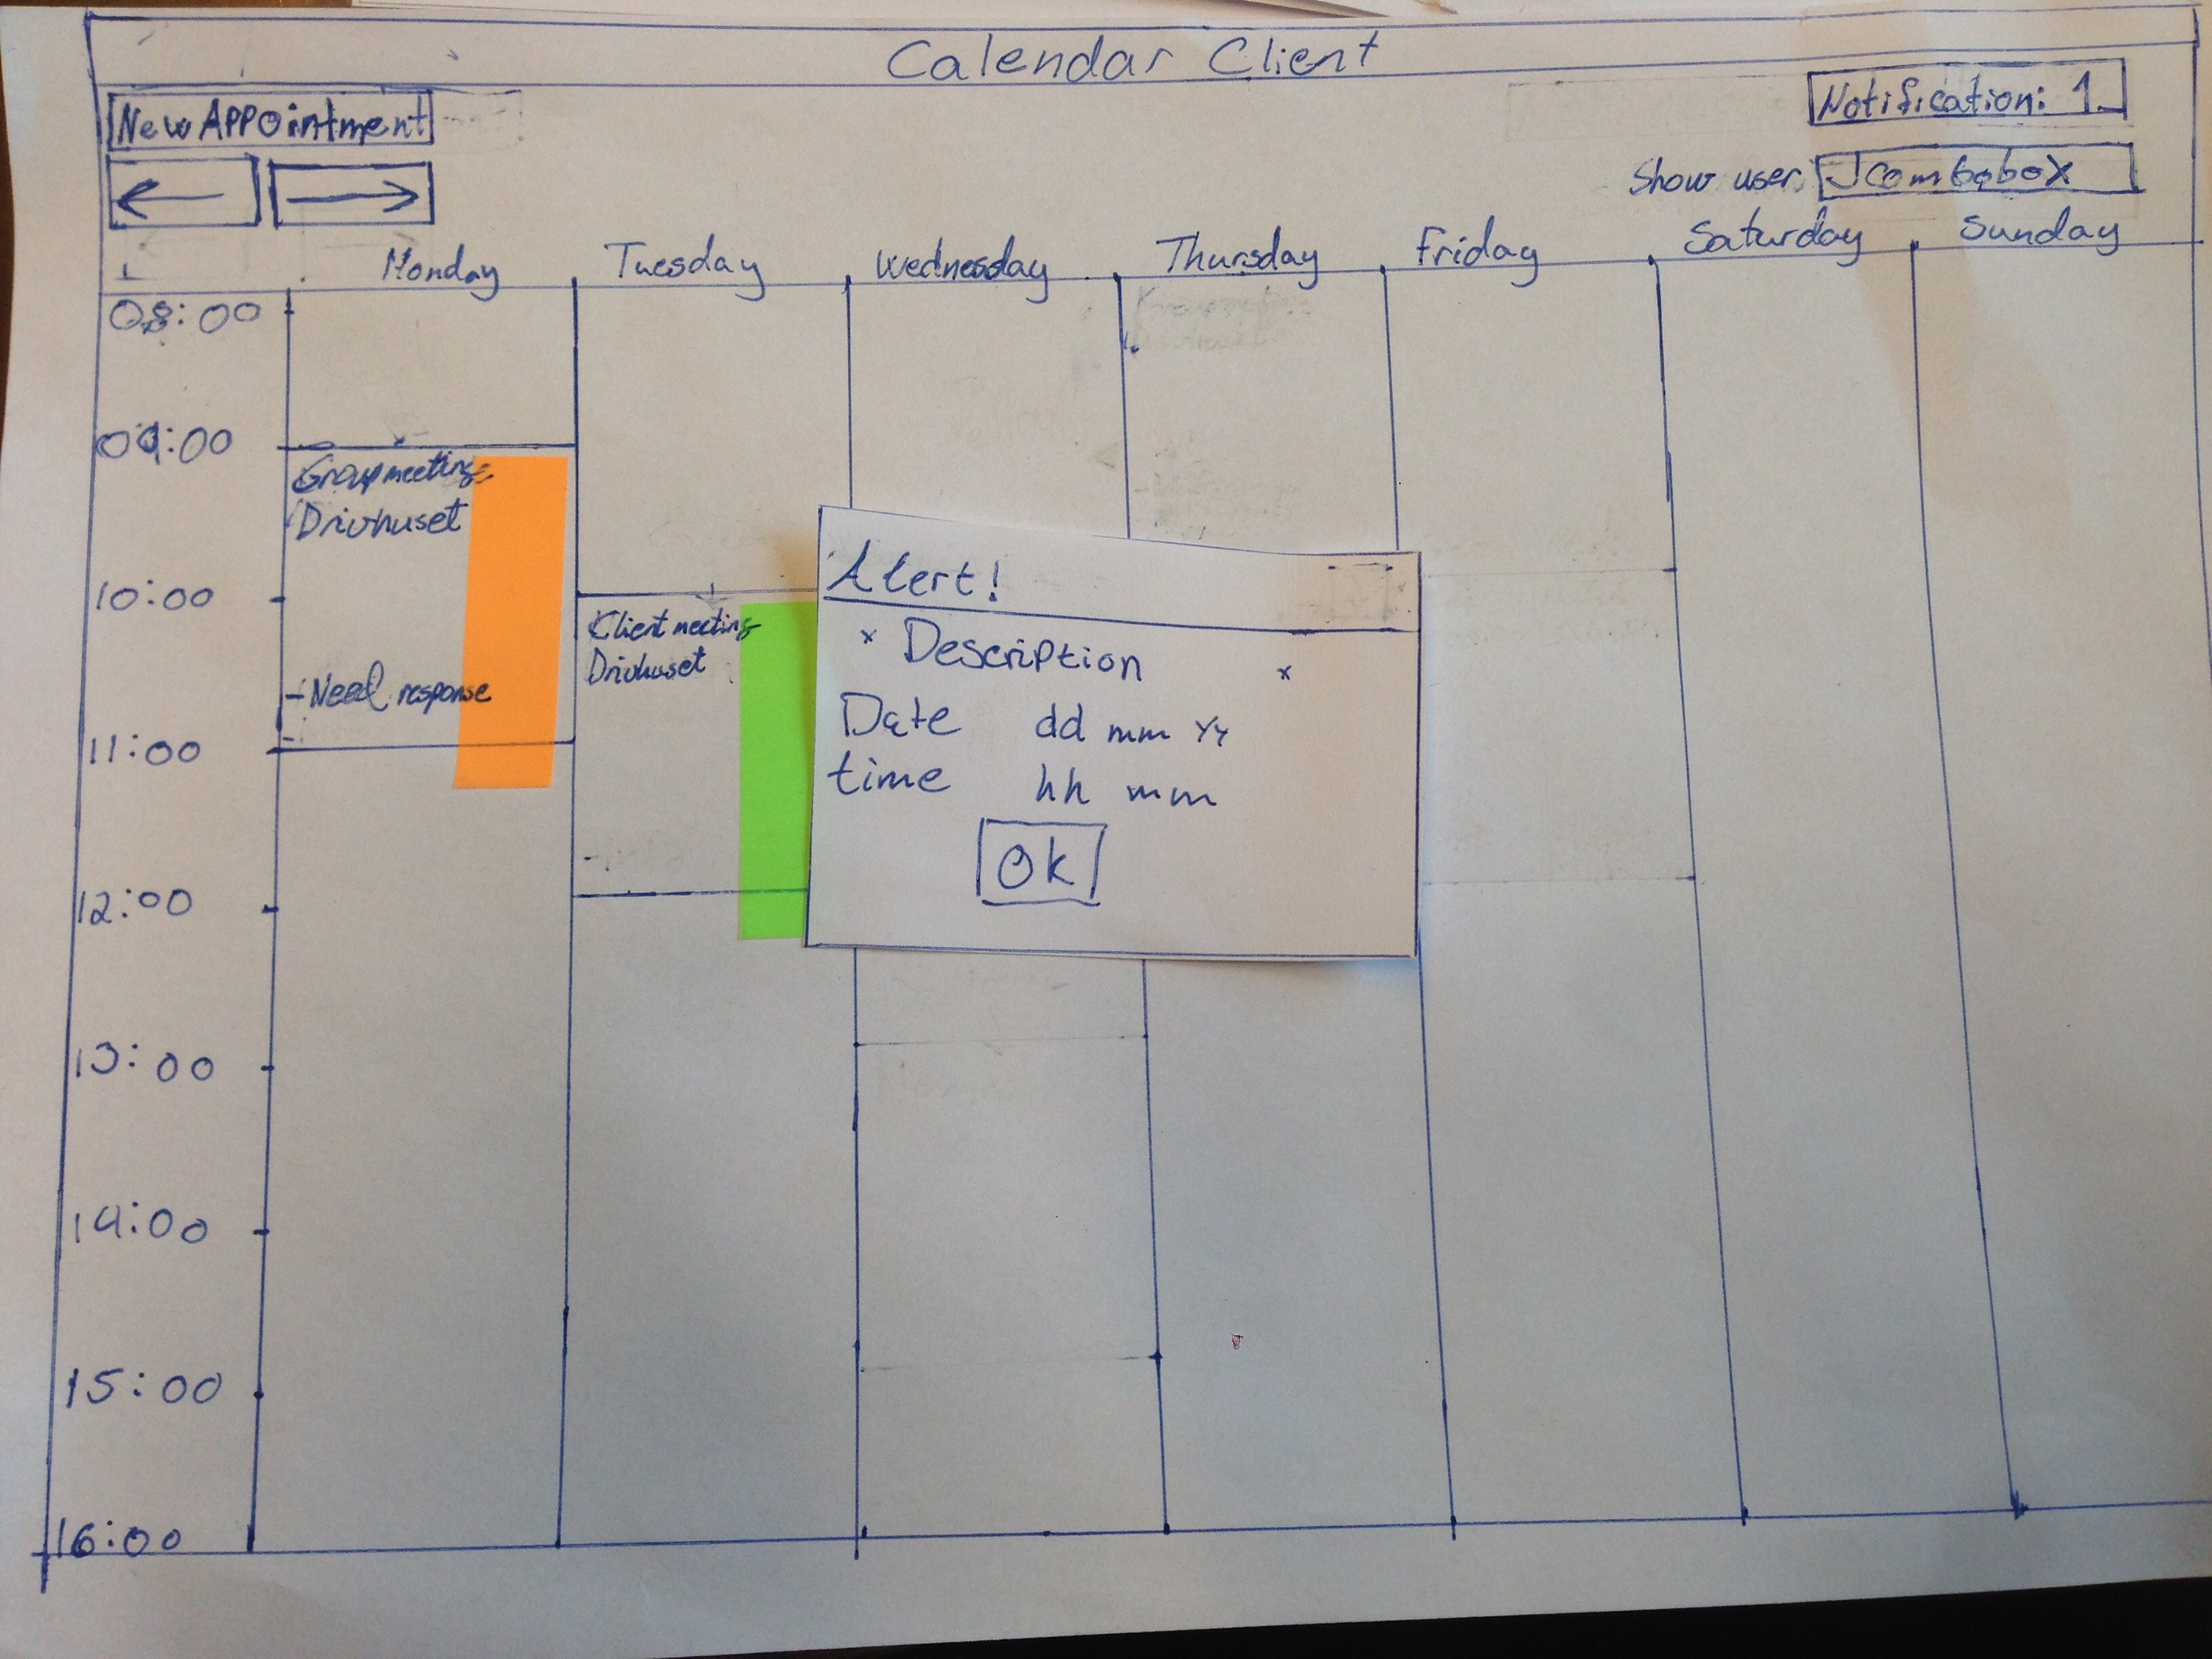 Calendar Client
New APPointment
Notification: 1
Show user: Jcombobox
Monday Tuesday Wednesday Thursday Friday Saturday Sunday
08:00
09:00
Groupmeeting
Drivhuset
10:00
Client meeting
Drivhuset
- Need response
11:00
12:00
13:00
14:00
15:00
16:00
Alert!
x Description x
Date dd mm yy
time hh mm
Ok